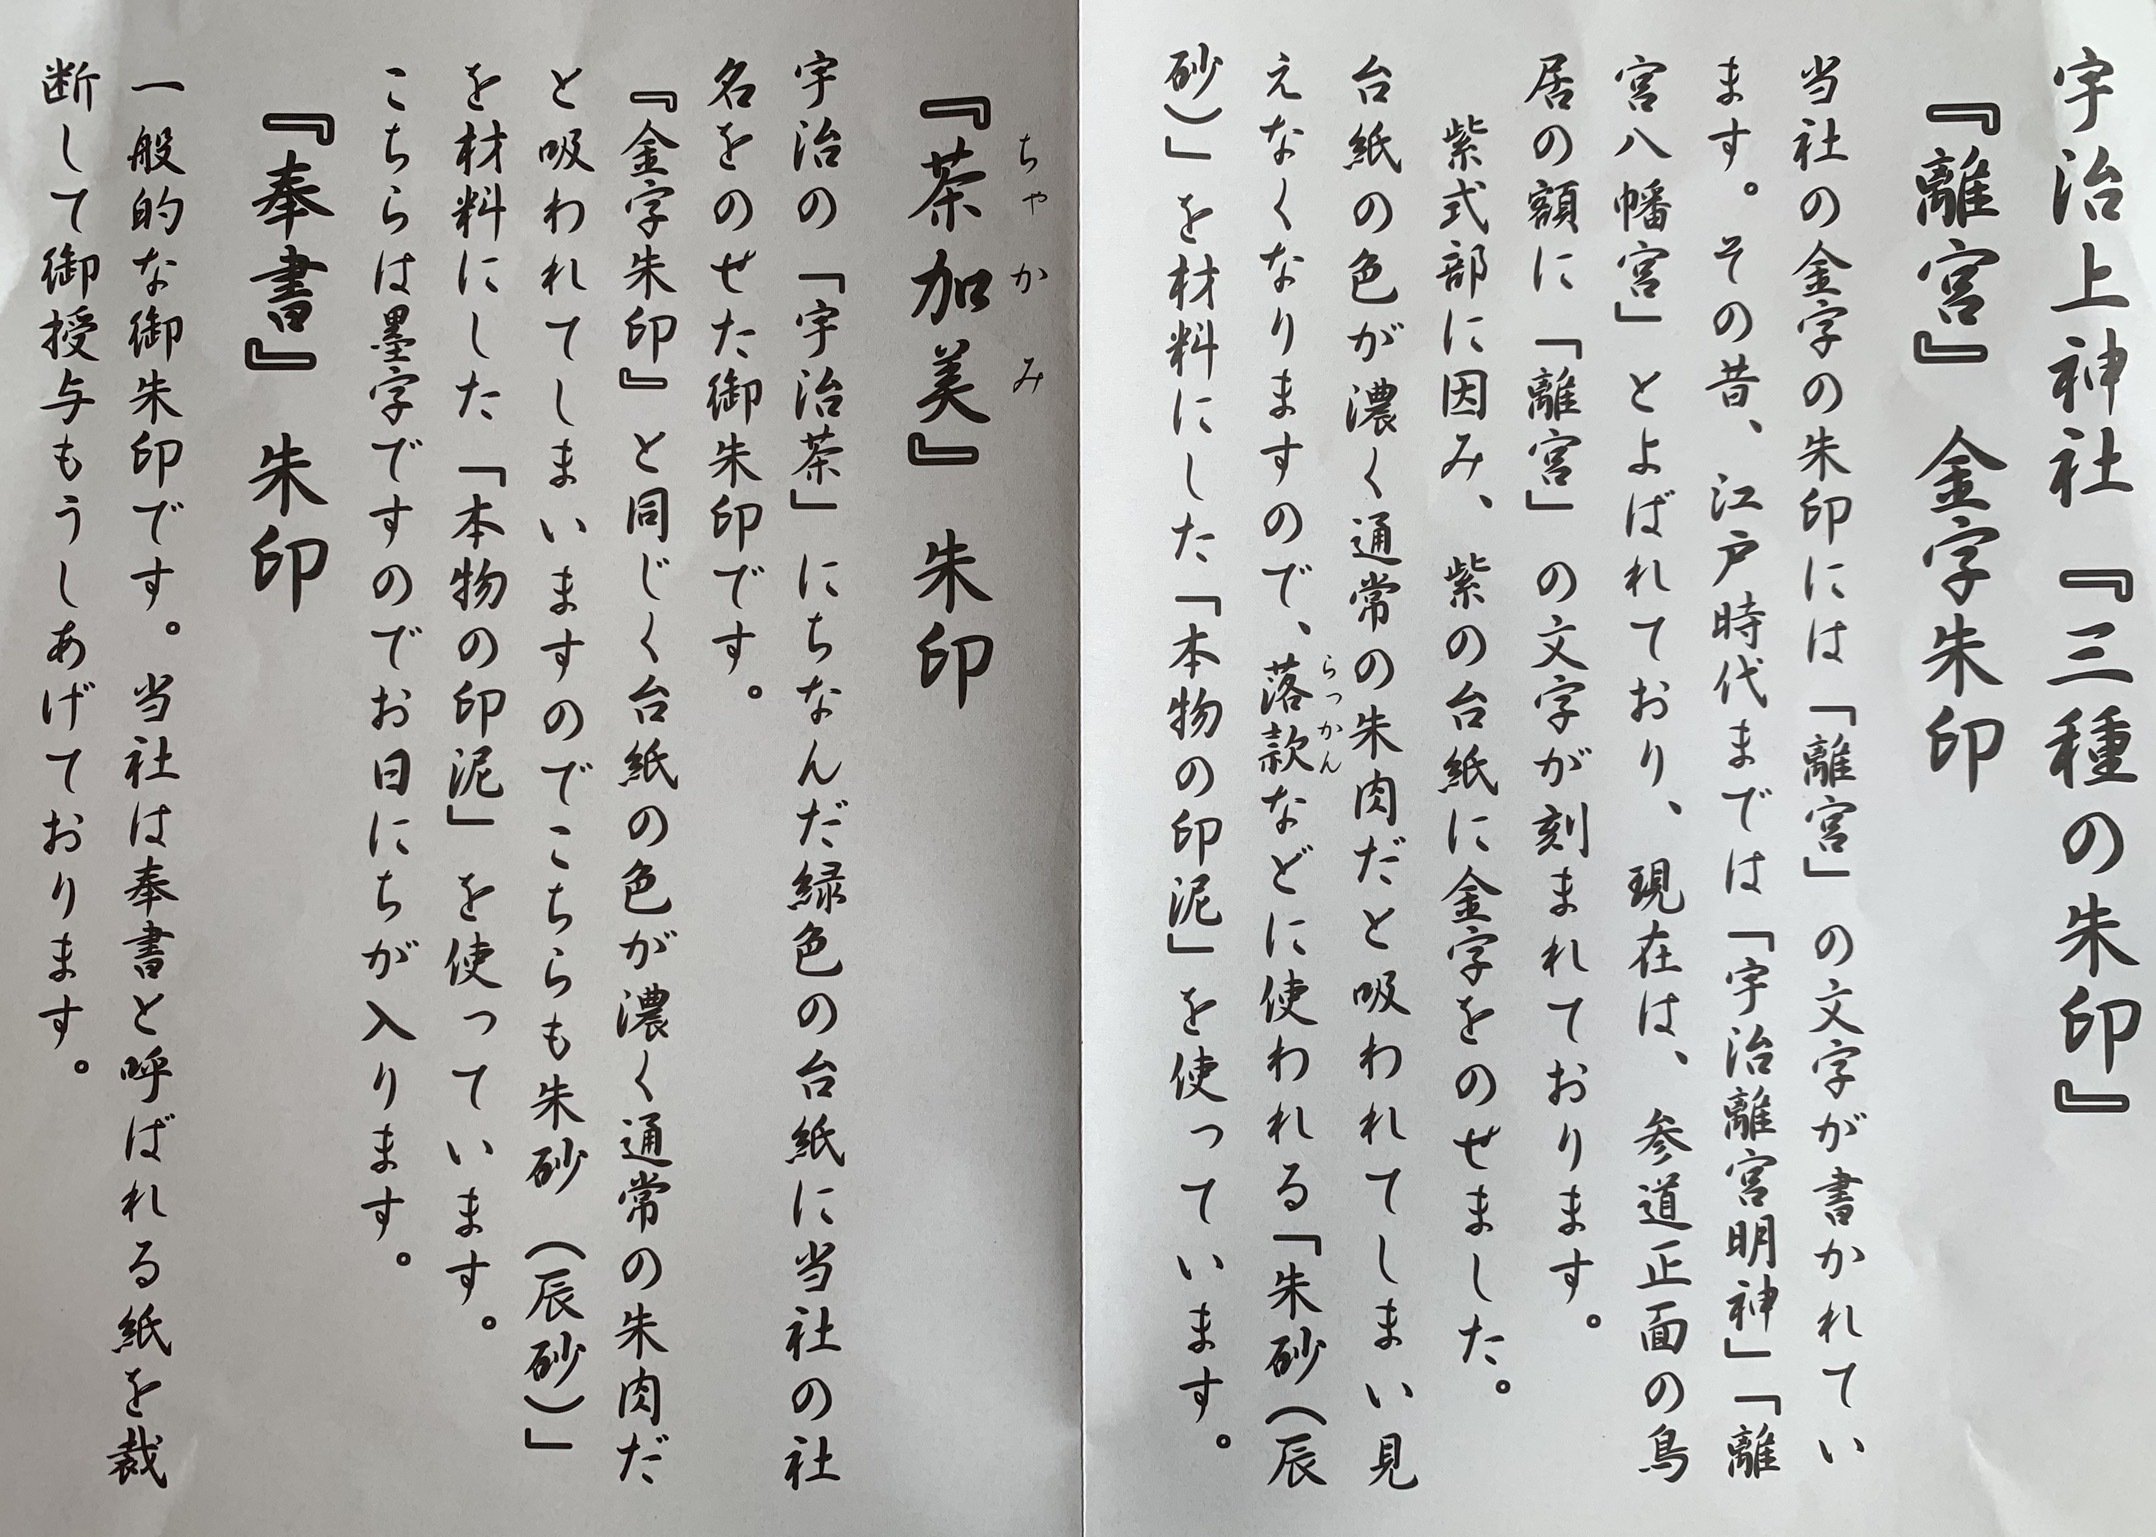 宇治上神社『三種の朱印』
『離宮』金字朱印
当社の金字の朱印には「離宮」の文字が書かれてい
ます。その昔、江戸時代までは「宇治離宮明神」「離
宮八幡宮」とよばれており、現在は、参道正面の鳥
居の額に「離宮」の文字が刻まれております。
紫式部に因み、紫の台紙に金字をのせました。
台紙の色が濃く通常の朱肉だと吸われてしまい見
えなくなりますので、落款などに使われる「朱砂（辰
らっかん
砂）」を材料にした「本物の印泥」を使っています。
『茶加美』朱印
ちゃかみ
宇治の「宇治茶」にちなんだ緑色の台紙に当社の社
名をのせた御朱印です。
『金字朱印』と同じく台紙の色が濃く通常の朱肉だ
と吸われてしまいますのでこちらも朱砂（辰砂）」
を材料にした「本物の印泥」を使っています。
こちらは墨字ですのでお日にちが入ります。
『奉書』朱印
一般的な御朱印です。当社は奉書と呼ばれる紙を裁
断して御授与もうしあげております。